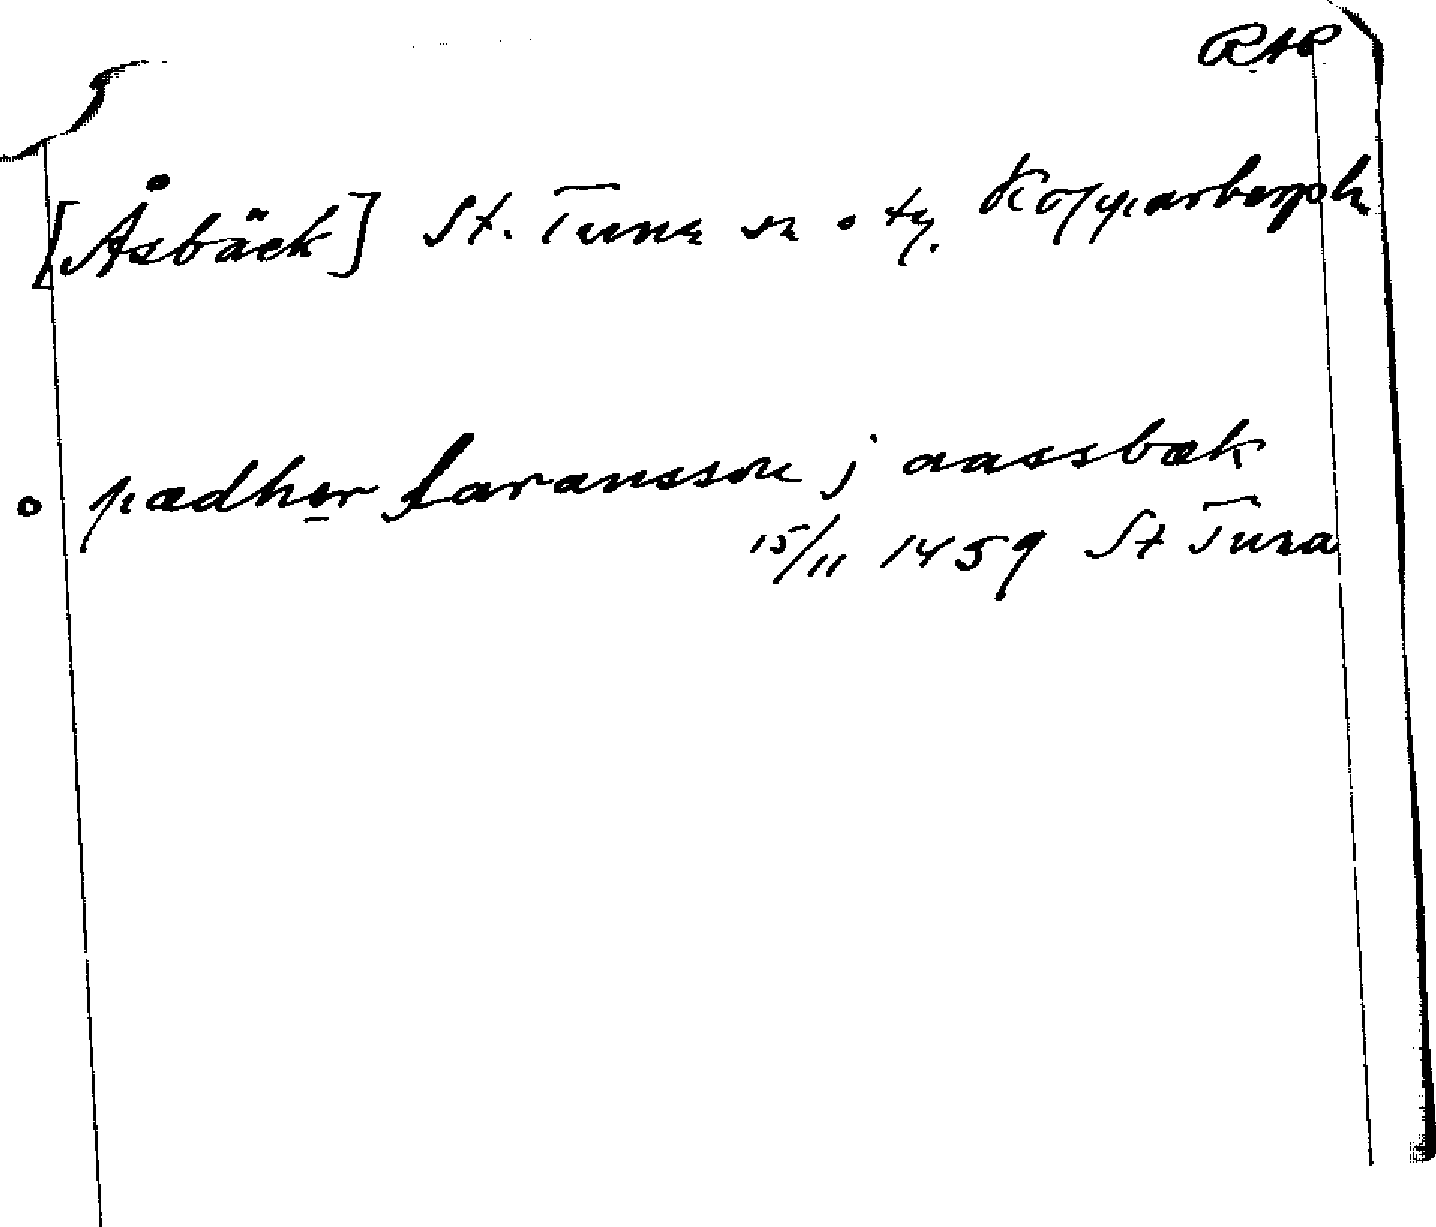 RAP
[Åsbäck] St. Tuna sn o tg. Kopparbergs l.
o pædher laransson j aassbæk
15/11 1459 St Tuna